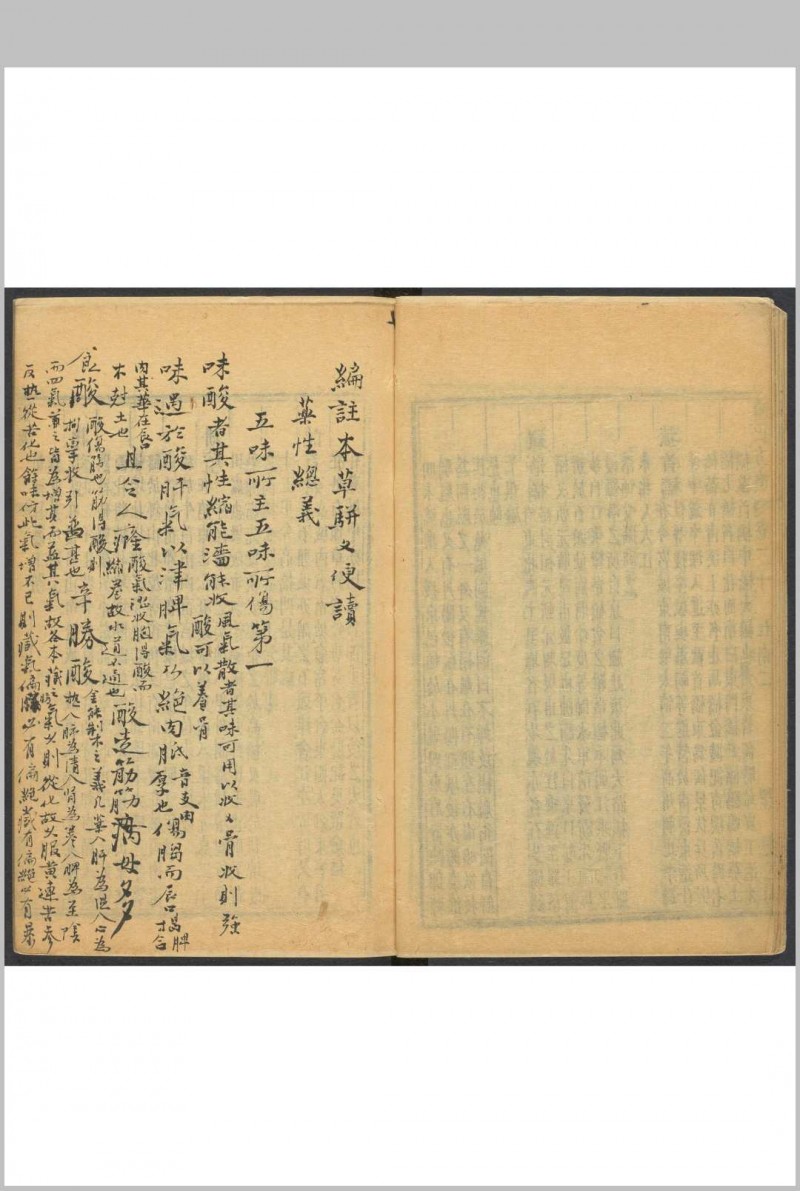 編註本草駢文便讀
藥性總義
五味所主五味所傷第一
味酸者其性縮能濇能收風氣散者其味可用以收之骨收則強
酸可以養骨
味過於酸肝氣以津脾氣乃絕肉胝音支皮肉厚也傷䐢而唇揭脾合
肉其華在唇
木尅土也且令人癃酸氣澀收胞得酸而縮卷故水道不通也酸走筋筋病毋多
食酸酸傷筋也筋得酸則拘攣收引益甚也辛勝酸金能制木之義凡藥入肝為温入心為
熱入肺為清入腎為寒入脾為至陰
而四氣兼之皆為增其味而益其氣故各本臟之氣久則從化故久服黄連苦參
反熱從苦化也餘味仿此氣增不已則臟氣偏勝必有偏絕臟有偏絕必有暴